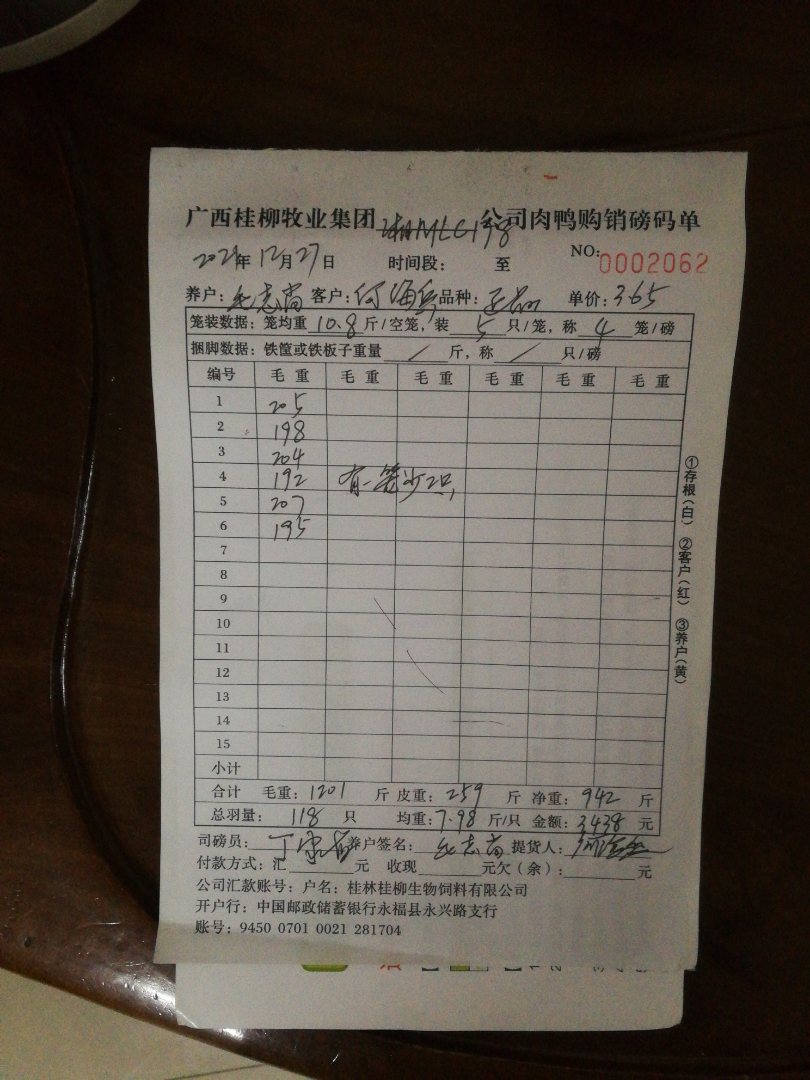 广西桂柳牧业集团 湘MLC198 公司肉鸭购销磅码单
2021年12月27日 时间段： 至 NO:0002062
养户： 客户：何海兵 品种： 单价：3.65
笼装数据：笼均重 10.8 斤/空笼，装 5 只/笼，称 4 笼/磅
捆脚数据：铁筐或铁板子重量 / 斤，称 / 只/磅
编号 毛重 毛重 毛重 毛重 毛重 毛重
1 205
2 198
3 204
4 192 有一笼少2只,
5 207
6 195
7
8
9
10
11
12
13
14
15
小计
合计 毛重：1201 斤 皮重：259 斤 净重：942 斤
总羽量： 118 只 均重：7.98 斤/只 金额：3438 元
司磅员： 养户签名： 提货人：
付款方式：汇 元 收现 元欠（余）： 元
公司汇款账号：户名：桂林桂柳生物饲料有限公司
开户行：中国邮政储蓄银行永福县永兴路支行
账号：9450 0701 0021 281704
①存根（白） ②客户（红） ③养户（黄）